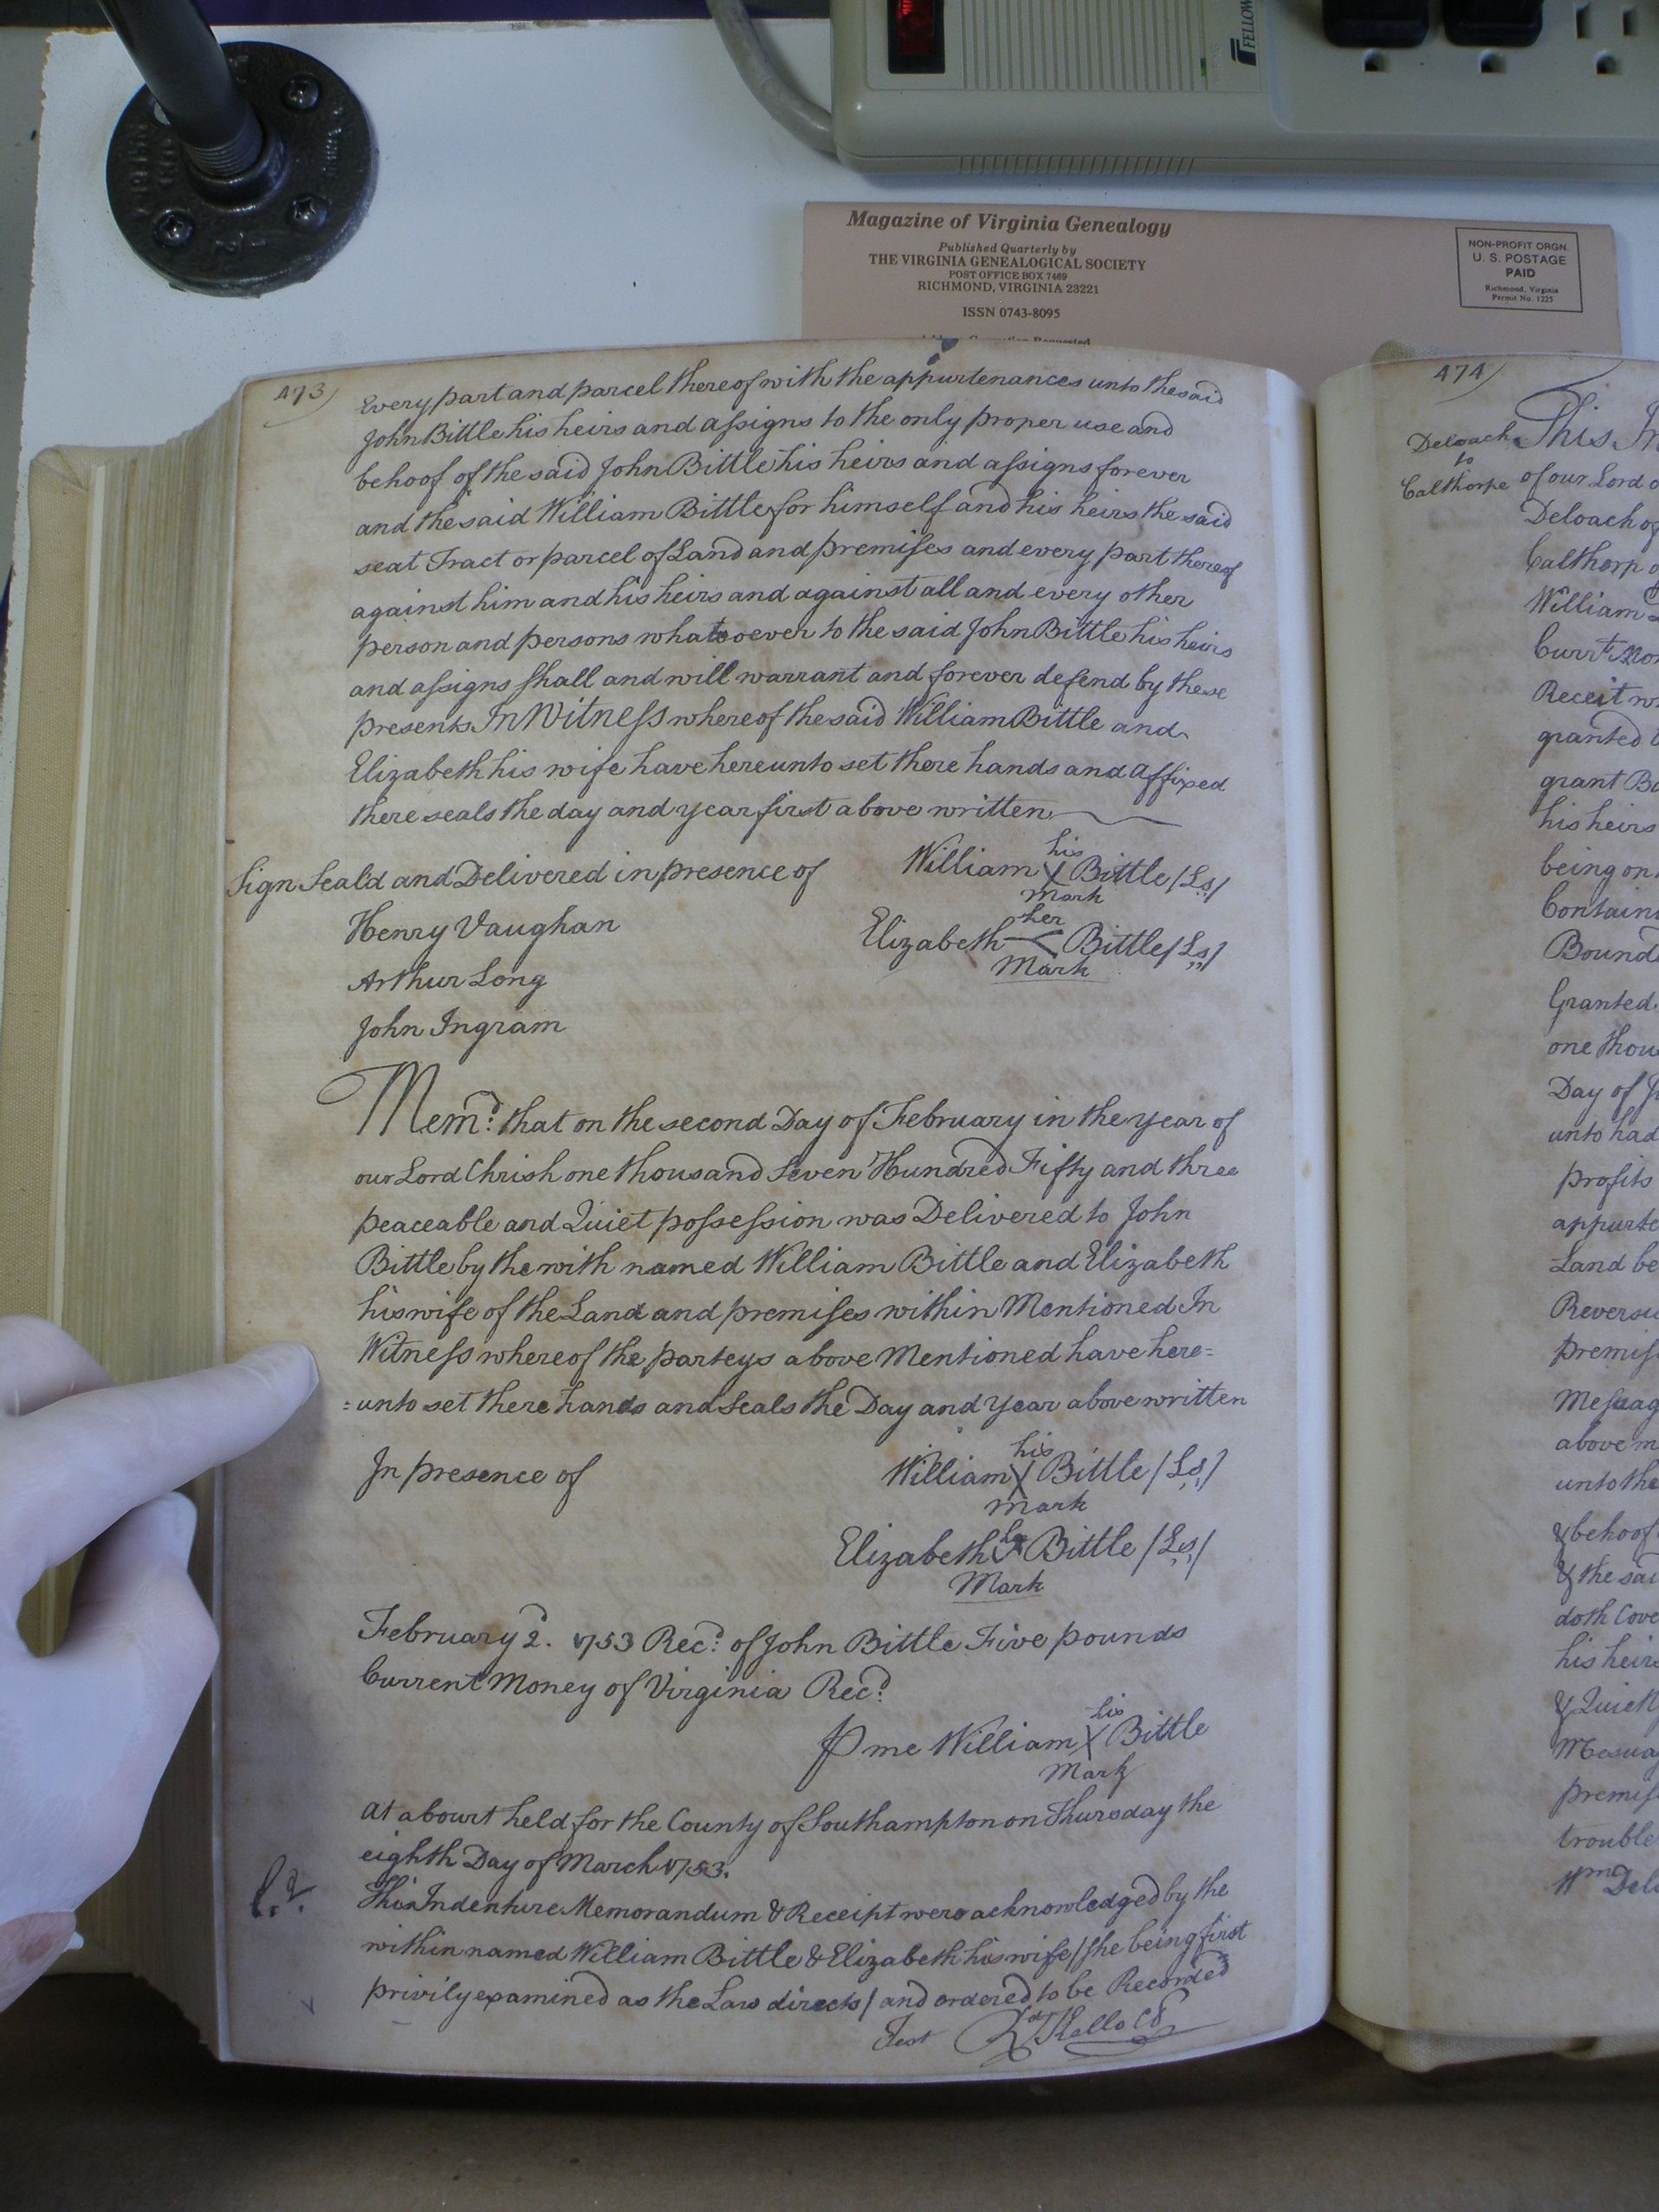 FELLOW
Magazine of Virginia Genealogy
Published Quarterly by
THE VIRGINIA GENEALOGICAL SOCIETY
POST OFFICE BOX 7469
RICHMOND, VIRGINIA 23221
ISSN 0743-8095
NON-PROFIT ORGN.
U. S. POSTAGE
PAID
Richmond, Virginia
Permit No. 1225
473
Every part and parcel thereof with the appurtenances unto the said
John Bittle his heirs and assigns to the only proper use and
behoof of the said John Bittle his heirs and assigns forever
and the said William Bittle for himself and his heirs the said
seat Tract or parcel of Land and premises and every part thereof
against him and his heirs and against all and every other
person and persons whatsoever to the said John Bittle his heirs
and assigns shall and will warrant and forever defend by these
presents In Witness whereof the said William Bittle and
Elizabeth his wife have hereunto set there hands and affixed
there seals the day and year first above written
Sign Seald and Delivered in presence of
Henry Vaughan
Arthur Long
John Ingram
his
William X Bittle (Ls)
Mark
her
Elizabeth Bittle (Ls)
Mark
Memd. that on the second Day of February in the year of
our Lord Chrish one thousand seven Hundred Fifty and three
peaceable and Quiet possession was Delivered to John
Bittle by the with named William Bittle and Elizabeth
his wife of the Land and premises within Mentioned In
Witness whereof the parteys above Mentioned have here=
=unto set there hands and seals the Day and year above written
In presence of
his
William X Bittle (Ls)
mark
her
Elizabeth Bittle (Ls)
Mark
February 2d. 1753 Recd. of John Bittle Five pounds
Current Money of Virginia Recd.
his
P me William X Bittle
Mark
At a Court held for the County of Southampton on Thursday the
eighth Day of March 1753.
This Indenture Memorandum & Receipt were acknowledged by the
within named William Bittle & Elizabeth his wife (she being first
privily examined as the Law directs) and ordered to be Recorded
Test Rd Kello CC
474
Deloach
to
Calthorpe
This In
of our Lord o
Deloach of
Calthorp o
William
Currt Mon
Receit w
granted
grant Ba
his heirs
being on
Containi
Bound
Granted
one thou
Day of J
unto had
profits
appurte
Land be
Reversi
premis
Mesuag
above m
unto the
& behoof
& the sai
doth Cove
his heirs
& Quiet
Mesua
premis
trouble
Wm Delo